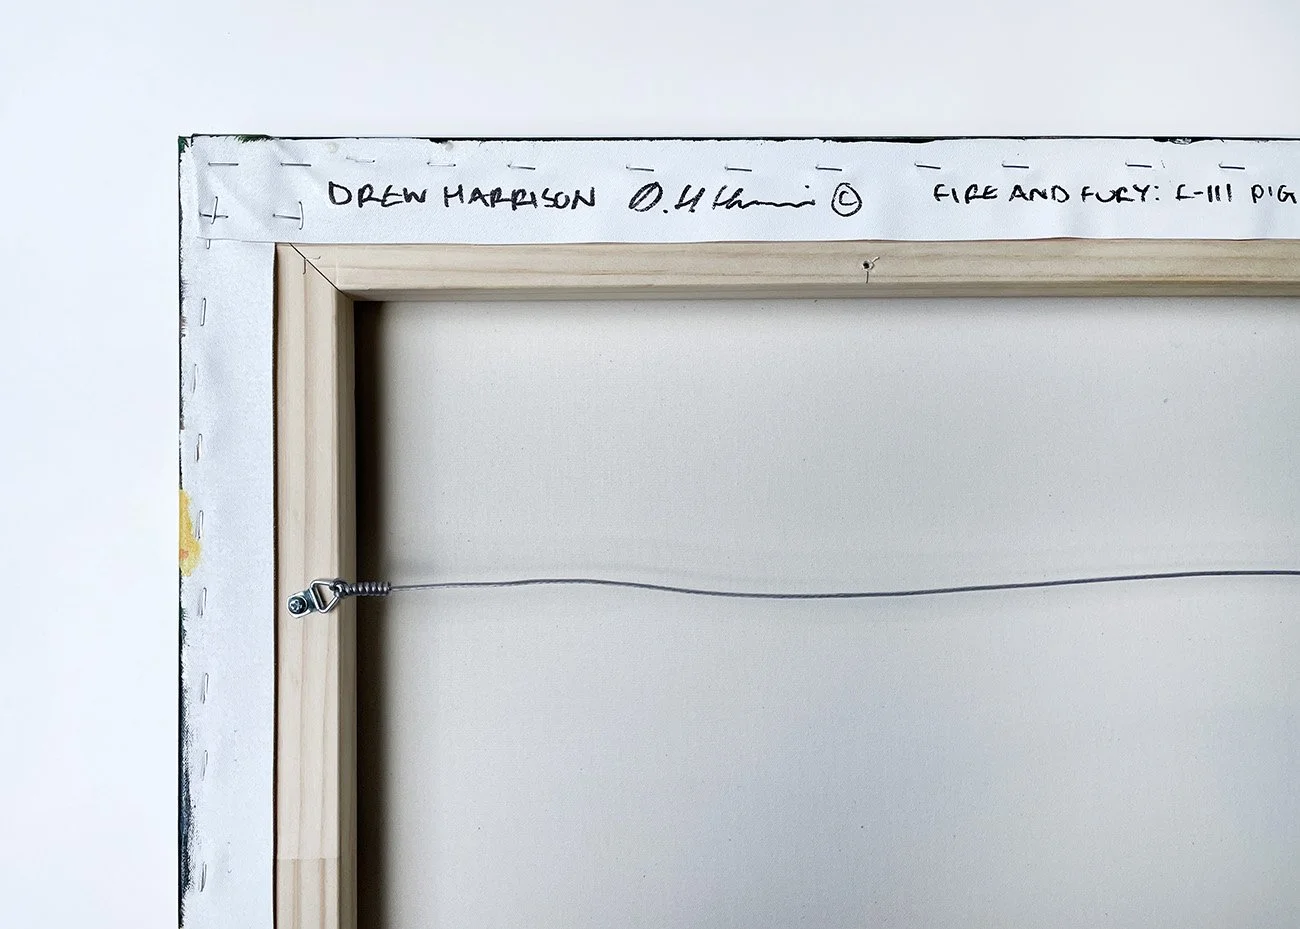 DREW HARRISON D. H Harrison © FIRE AND FURY: F-111 PIG